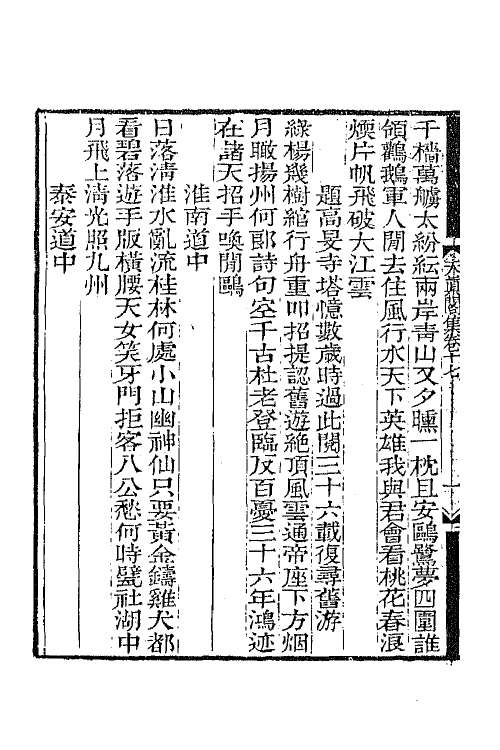 千檣萬艣太紛紜兩岸青山又夕曛一枕且安鷗鷺夢四圍誰
領鸛鵝軍人閒去住風行水天下英雄我與君會看桃花春浪
煖片帆飛破大江雲
題高旻寺塔憶數歲時過此閱三十六載復尋舊游
綠楊幾樹綰行舟重叩招提認舊遊絶頂風雲通帝座下方烟
月瞰揚州何郎詩句空千古杜老登臨反百憂三十六年鴻迹
在諸天招手喚閒鷗
淮南道中
日落淸淮水亂流桂林何處小山幽神仙只要黃金鑄雞犬都
看碧落遊手版橫腰天女笑牙門拒客八公愁何時甓社湖中
月飛上淸光照九州
泰安道中
集卷十七